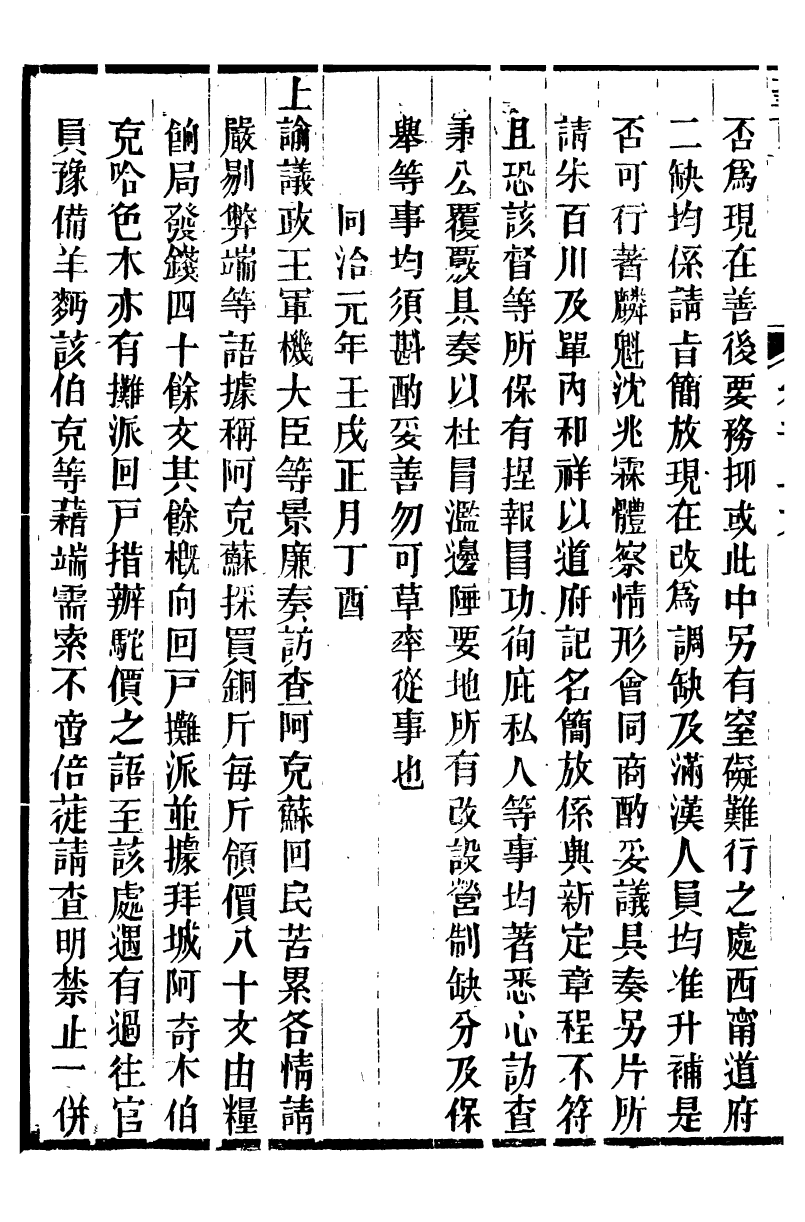 否爲現在善後要務抑或此中另有窒礙難行之處西甯道府
二缺均係請旨簡放現在改爲調缺及滿漢人員均准升補是
否可行著麟魁沈兆霖體察情形會同商酌妥議具奏另片所
請朱百川及單內和祥以道府記名簡放係與新定章程不符
且恐該督等所保有捏報冒功徇庇私人等事均著悉心訪查
秉公覆覈具奏以杜冒濫邊陲要地所有改設營制缺分及保
舉等事均須斟酌妥善勿可草率從事也
同治元年壬戌正月丁酉
上諭議政王軍機大臣等景廉奏訪查阿克蘇回民苦累各情請
嚴剔弊端等語據稱阿克蘇採買銅斤每斤領價八十文由糧
餉局發錢四十餘文其餘概向回戶攤派並據拜城阿奇木伯
克哈色木亦有攤派回戶措辦駝價之語至該處遇有過往官
員豫備羊麪該伯克等藉端需索不啻倍蓰請查明禁止一併